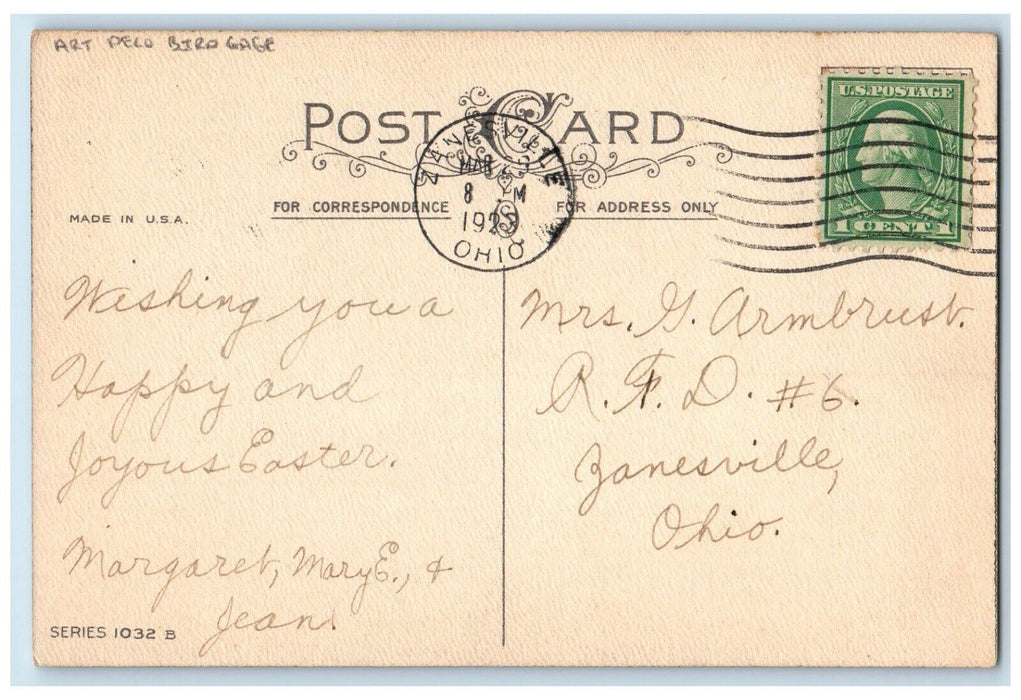 ART DECO BIRD CAGE
POST CARD
ZANESVILLE
MAR
8 M
192
OHIO
U.S. POSTAGE
1 CENT 1
FOR CORRESPONDENCE
FOR ADDRESS ONLY
MADE IN U.S.A.
Wishing you a
Happy and
Joyous Easter.
Margaret, Mary E., &
Jean.
SERIES 1032 B
Mrs. G. Armbrust.
R. F. D. #6.
Zanesville,
Ohio.